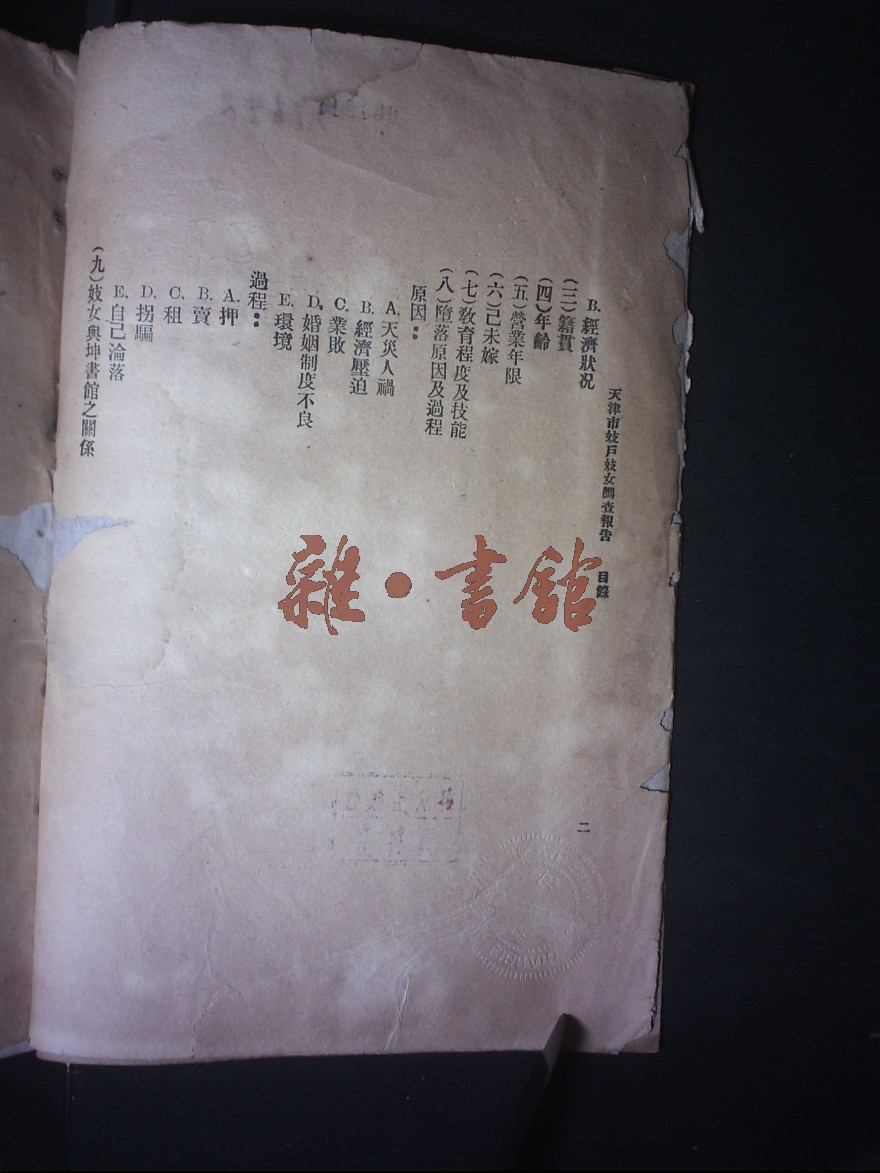 天津市妓戶妓女調查報告 目錄
二
B. 經濟狀况
(三)籍貫
(四)年齡
(五)營業年限
(六)已未嫁
(七)敎育程度及技能
(八)墮落原因及過程
原因：
A. 天災人禍
B. 經濟壓迫
C. 業敗
D. 婚姻制度不良
E. 環境
過程：
A. 押
B. 賣
C. 租
D. 拐騙
E. 自己淪落
(九)妓女與坤書館之關係
雜·書館